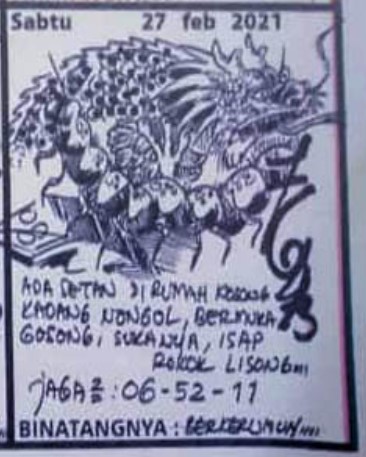 Sabtu 27 feb 2021
ADA SETAN DI RUMAH KOSONG
KADANG NONGOL, BERMUKA
GOSONG, SUKANYA, ISAP
ROKOK LISONG...
JAGA2 : 06-52-11
BINATANGNYA : BERKERUMUN....